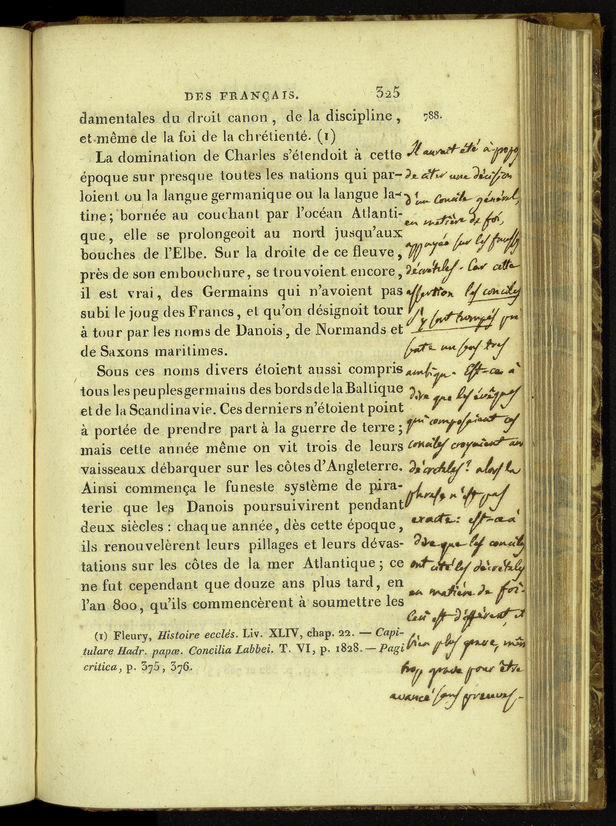 DES FRANÇAIS. 325
788.
damentales du droit canon, de la discipline,
et même de la foi de la chrétienté. (1)
La domination de Charles s'étendoit à cette
époque sur presque toutes les nations qui par-
loient ou la langue germanique ou la langue la-
tine; bornée au couchant par l'océan Atlanti-
que, elle se prolongeoit au nord jusqu'aux
bouches de l'Elbe. Sur la droite de ce fleuve,
près de son embouchure, se trouvoient encore,
il est vrai, des Germains qui n'avoient pas
subi le joug des Francs, et qu'on désignoit tour
à tour par les noms de Danois, de Normands et
de Saxons maritimes.
Sous ces noms divers étoient aussi compris
tous les peuples germains des bords de la Baltique
et de la Scandinavie. Ces derniers n'étoient point
à portée de prendre part à la guerre de terre;
mais cette année même on vit trois de leurs
vaisseaux débarquer sur les côtes d'Angleterre.
Ainsi commença le funeste système de pira-
terie que les Danois poursuivirent pendant
deux siècles : chaque année, dès cette époque,
ils renouvelèrent leurs pillages et leurs dévas-
tations sur les côtes de la mer Atlantique; ce
ne fut cependant que douze ans plus tard, en
l'an 800, qu'ils commencèrent à soumettre les
(1) Fleury, Histoire ecclés. Liv. XLIV, chap. 22. — Capi-
tulare Hadr. papæ. Concilia Labbei. T. VI, p. 1828. — Pagi
critica, p. 375, 376.
Il aurait été à propos
de citer une décision
d'un Concile général,
en matière de foi,
appuyée sur les fausses
décrétales. Car cette
assertion les conciles
s'y sont trompés
un sens très
ambigu. Est-ce à
dire que les évêques
qui composaient ces
conciles croyaient aux
décrétales? alors la
phrase n'est pas
exacte : est-ce à
dire que les conciles
ont cité les décrétales
en matière de foi.
Ceci est différent et
bien plus grave, même
trop grave pour être
avancé sans preuves.